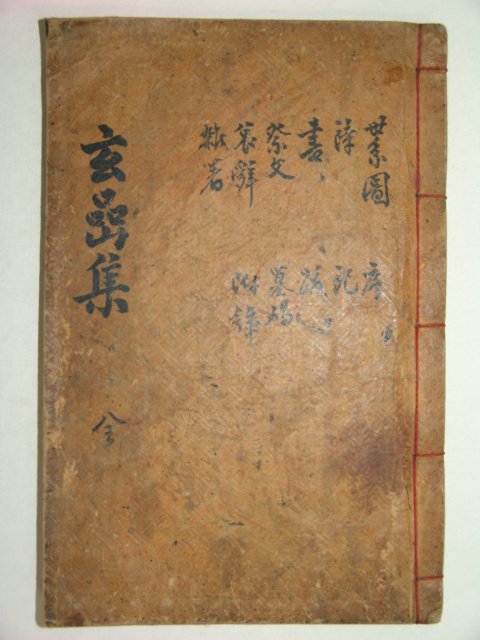 世系圖 序
記
書 跋
祭文 墓碣
哀辭 附錄
雜著
玄嵒集 全